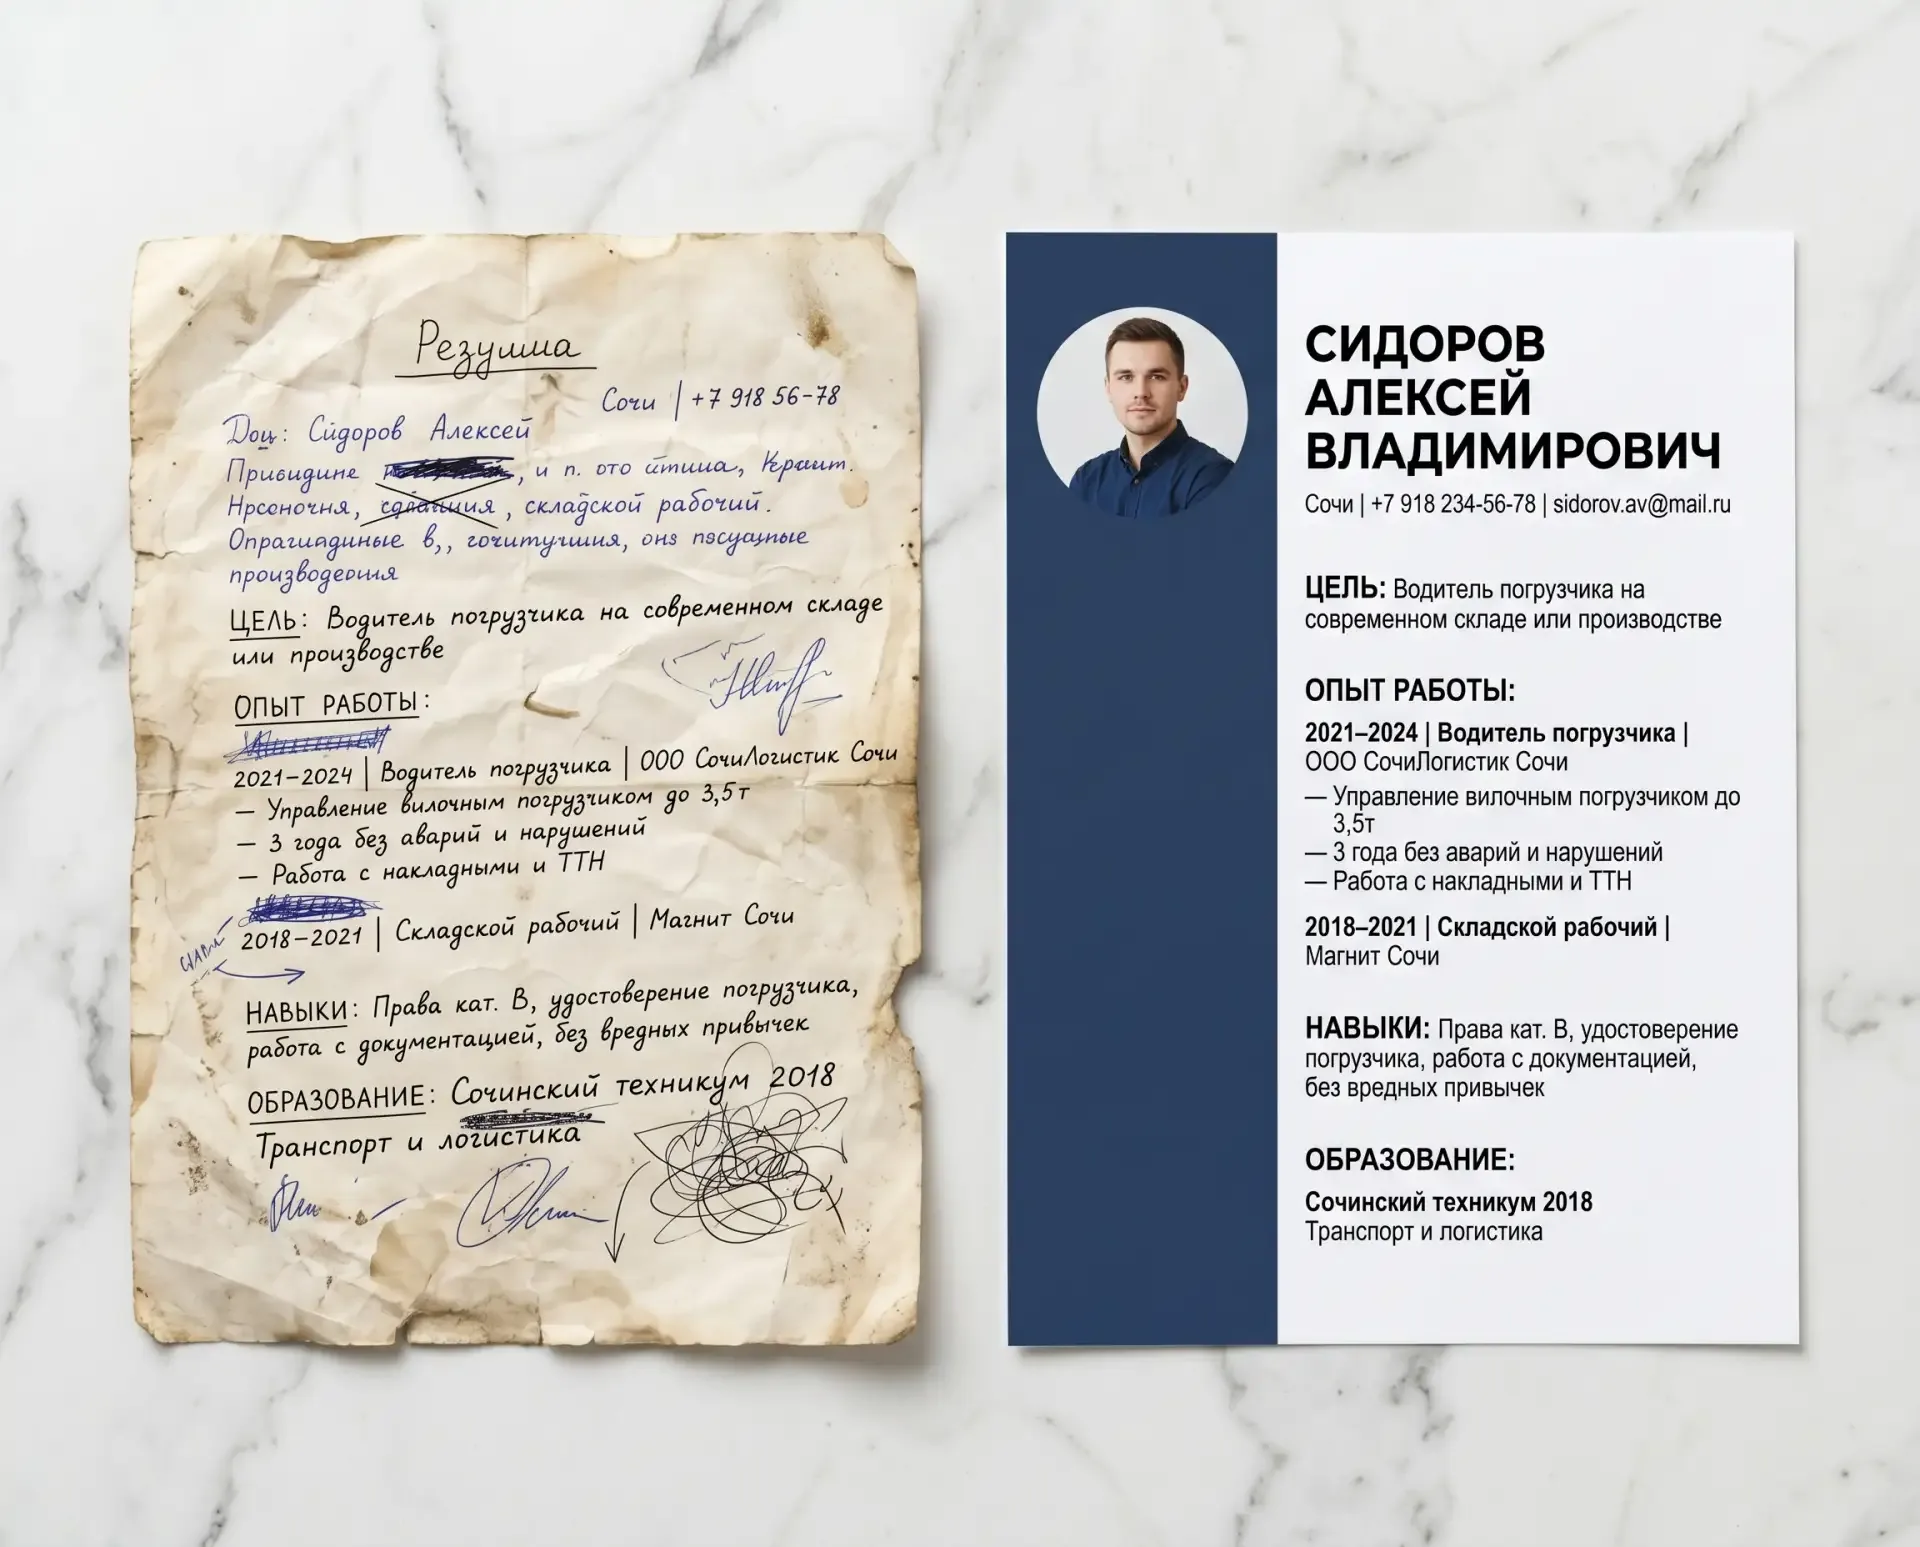 Резушма
Сочи | +7 918 56-78
Доц: Сидоров Алексей
складской рабочий.
ЦЕЛЬ: Водитель погрузчика на современном складе
или производстве
ОПЫТ РАБОТЫ:
2021–2024 | Водитель погрузчика | ООО СочиЛогистик Сочи
— Управление вилочным погрузчиком до 3,5т
— 3 года без аварий и нарушений
— Работа с накладными и ТТН
2018–2021 | Складской рабочий | Магнит Сочи
НАВЫКИ: Права кат. В, удостоверение погрузчика,
работа с документацией, без вредных привычек
ОБРАЗОВАНИЕ: Сочинский техникум 2018
Транспорт и логистика
СИДОРОВ
АЛЕКСЕЙ
ВЛАДИМИРОВИЧ
Сочи | +7 918 234-56-78 | sidorov.av@mail.ru
ЦЕЛЬ: Водитель погрузчика на
современном складе или производстве
ОПЫТ РАБОТЫ:
2021–2024 | Водитель погрузчика |
ООО СочиЛогистик Сочи
— Управление вилочным погрузчиком до
3,5т
— 3 года без аварий и нарушений
— Работа с накладными и ТТН
2018–2021 | Складской рабочий |
Магнит Сочи
НАВЫКИ: Права кат. В, удостоверение
погрузчика, работа с документацией,
без вредных привычек
ОБРАЗОВАНИЕ:
Сочинский техникум 2018
Транспорт и логистика